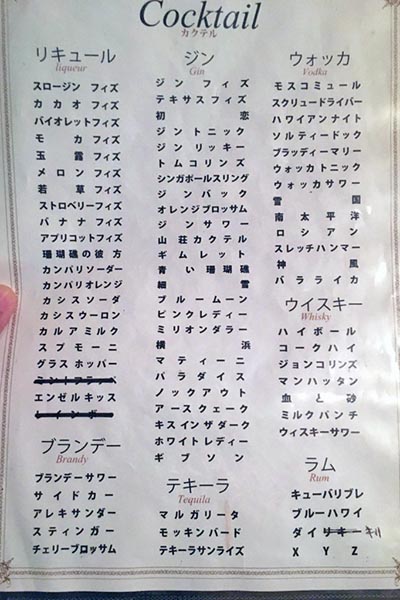 Cocktail
カクテル
リキュール
liqueur
スロージン フィズ
カカオ フィズ
バイオレットフィズ
モカ フィズ
玉露 フィズ
メロン フィズ
若草 フィズ
ストロベリーフィズ
バナナ フィズ
アプリコットフィズ
珊瑚礁の彼方
カンパリソーダー
カンパリオレンジ
カシスソーダ
カシスウーロン
カルアミルク
スプモーニ
グラスホッパー
ミントフラッペ
エンゼルキッス
レインボー
ブランデー
Brandy
ブランデーサワー
サイドカー
アレキサンダー
スティンガー
チェリーブロッサム
ジン
Gin
ジン フィズ
テキサスフィズ
初恋
ジントニック
ジンリッキー
トムコリンズ
シンガポールスリング
ジンバック
オレンジブロッサム
ジンサワー
山荘カクテル
ギムレット
青い珊瑚礁
細雪
ブルームーン
ピンクレディー
ミリオンダラー
横浜
マティーニ
パラダイス
ノックアウト
アースクェーク
キスインザダーク
ホワイトレディー
ギブソン
テキーラ
Tequila
マルガリータ
モッキンバード
テキーラサンライズ
ウォッカ
Vodka
モスコミュール
スクリュードライバー
ハワイアンナイト
ソルティードック
ブラッディーマリー
ウォッカトニック
ウォッカサワー
雪国
南太平洋
ロシアン
スレッヂハンマー
神風
バラライカ
ウイスキー
Whisky
ハイボール
コークハイ
ジョンコリンズ
マンハッタン
血と砂
ミルクパンチ
ウィスキーサワー
ラム
Rum
キューバリブレ
ブルーハワイ
ダイリキーキリ
XYZ